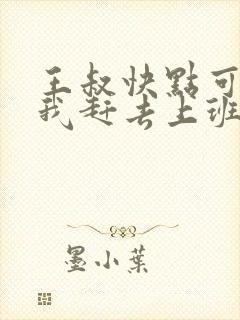 王叔快點可
我赶去上班
墨小葉